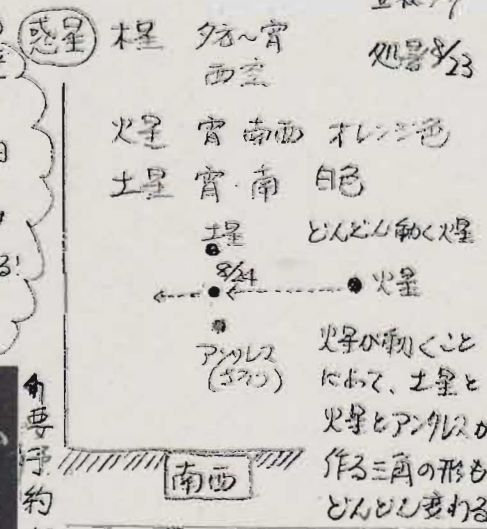 惑星
木星 夕方～宵
西空
処暑8/23
火星 宵 南西 オレンジ色
土星 宵・南 白色
土星
どんどん動く火星
8/24
火星
アンタレス
(さそり)
火星が動くこと
によって、土星と
火星とアンタレスが
作る三角の形も
どんどん変わる
南西
る!
要予約